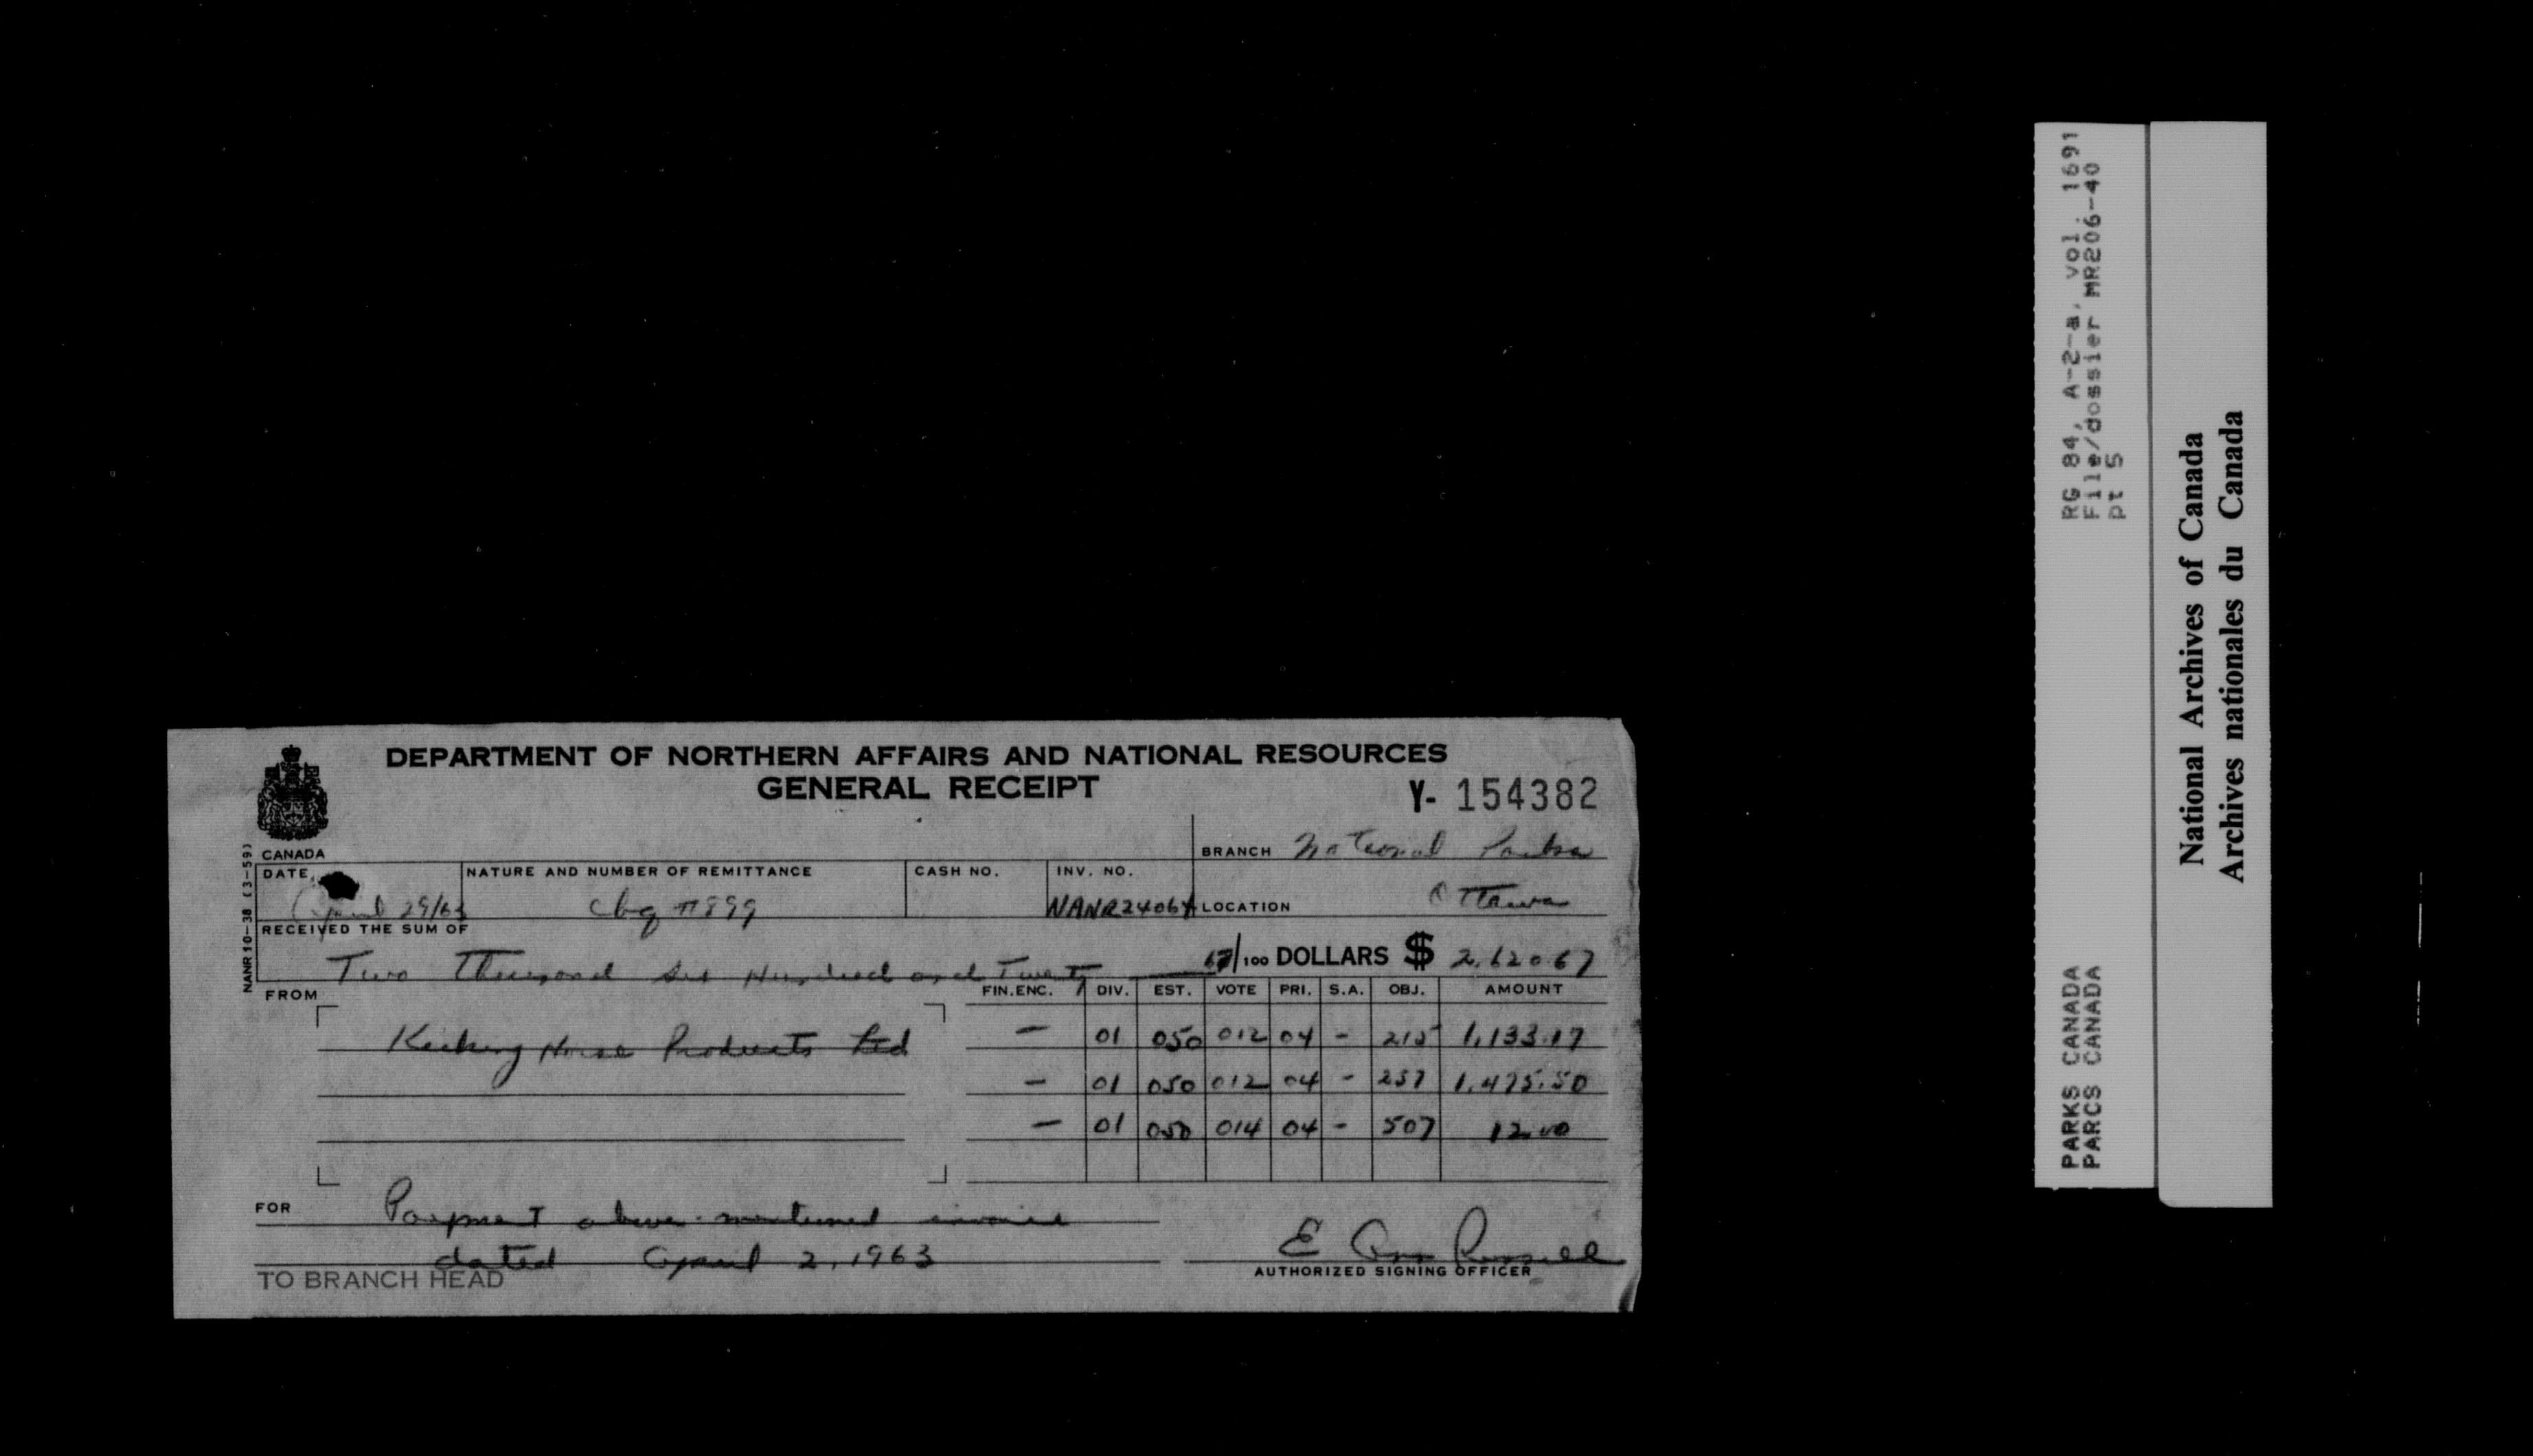 DEPARTMENT OF NORTHERN AFFAIRS AND NATIONAL RESOURCES
GENERAL RECEIPT
Y- 154382
CANADA
BRANCH National Parks
DATE
NATURE AND NUMBER OF REMITTANCE
CASH NO.
INV. NO.
April 29/63
Chq # 899
NANR24064
LOCATION Ottawa
NANR 10-38 (3-59)
RECEIVED THE SUM OF
Two Thousand Six Hundred and Twenty 67/100 DOLLARS $ 2,620.67
FROM
FIN.ENC. DIV. EST. VOTE PRI. S.A. OBJ. AMOUNT
Kicking Horse Products Ltd
— 01 050 012 04 - 215 1,133.17
— 01 050 012 04 - 257 1,475.50
— 01 050 014 04 - 507 12.00
FOR Payment above-mentioned invoice
dated April 2, 1963
E Ann Russell
TO BRANCH HEAD
AUTHORIZED SIGNING OFFICER
RG 84, A-2-a, vol. 1691
File/dossier MR206-40
pt 5
PARKS CANADA
PARCS CANADA
National Archives of Canada
Archives nationales du Canada